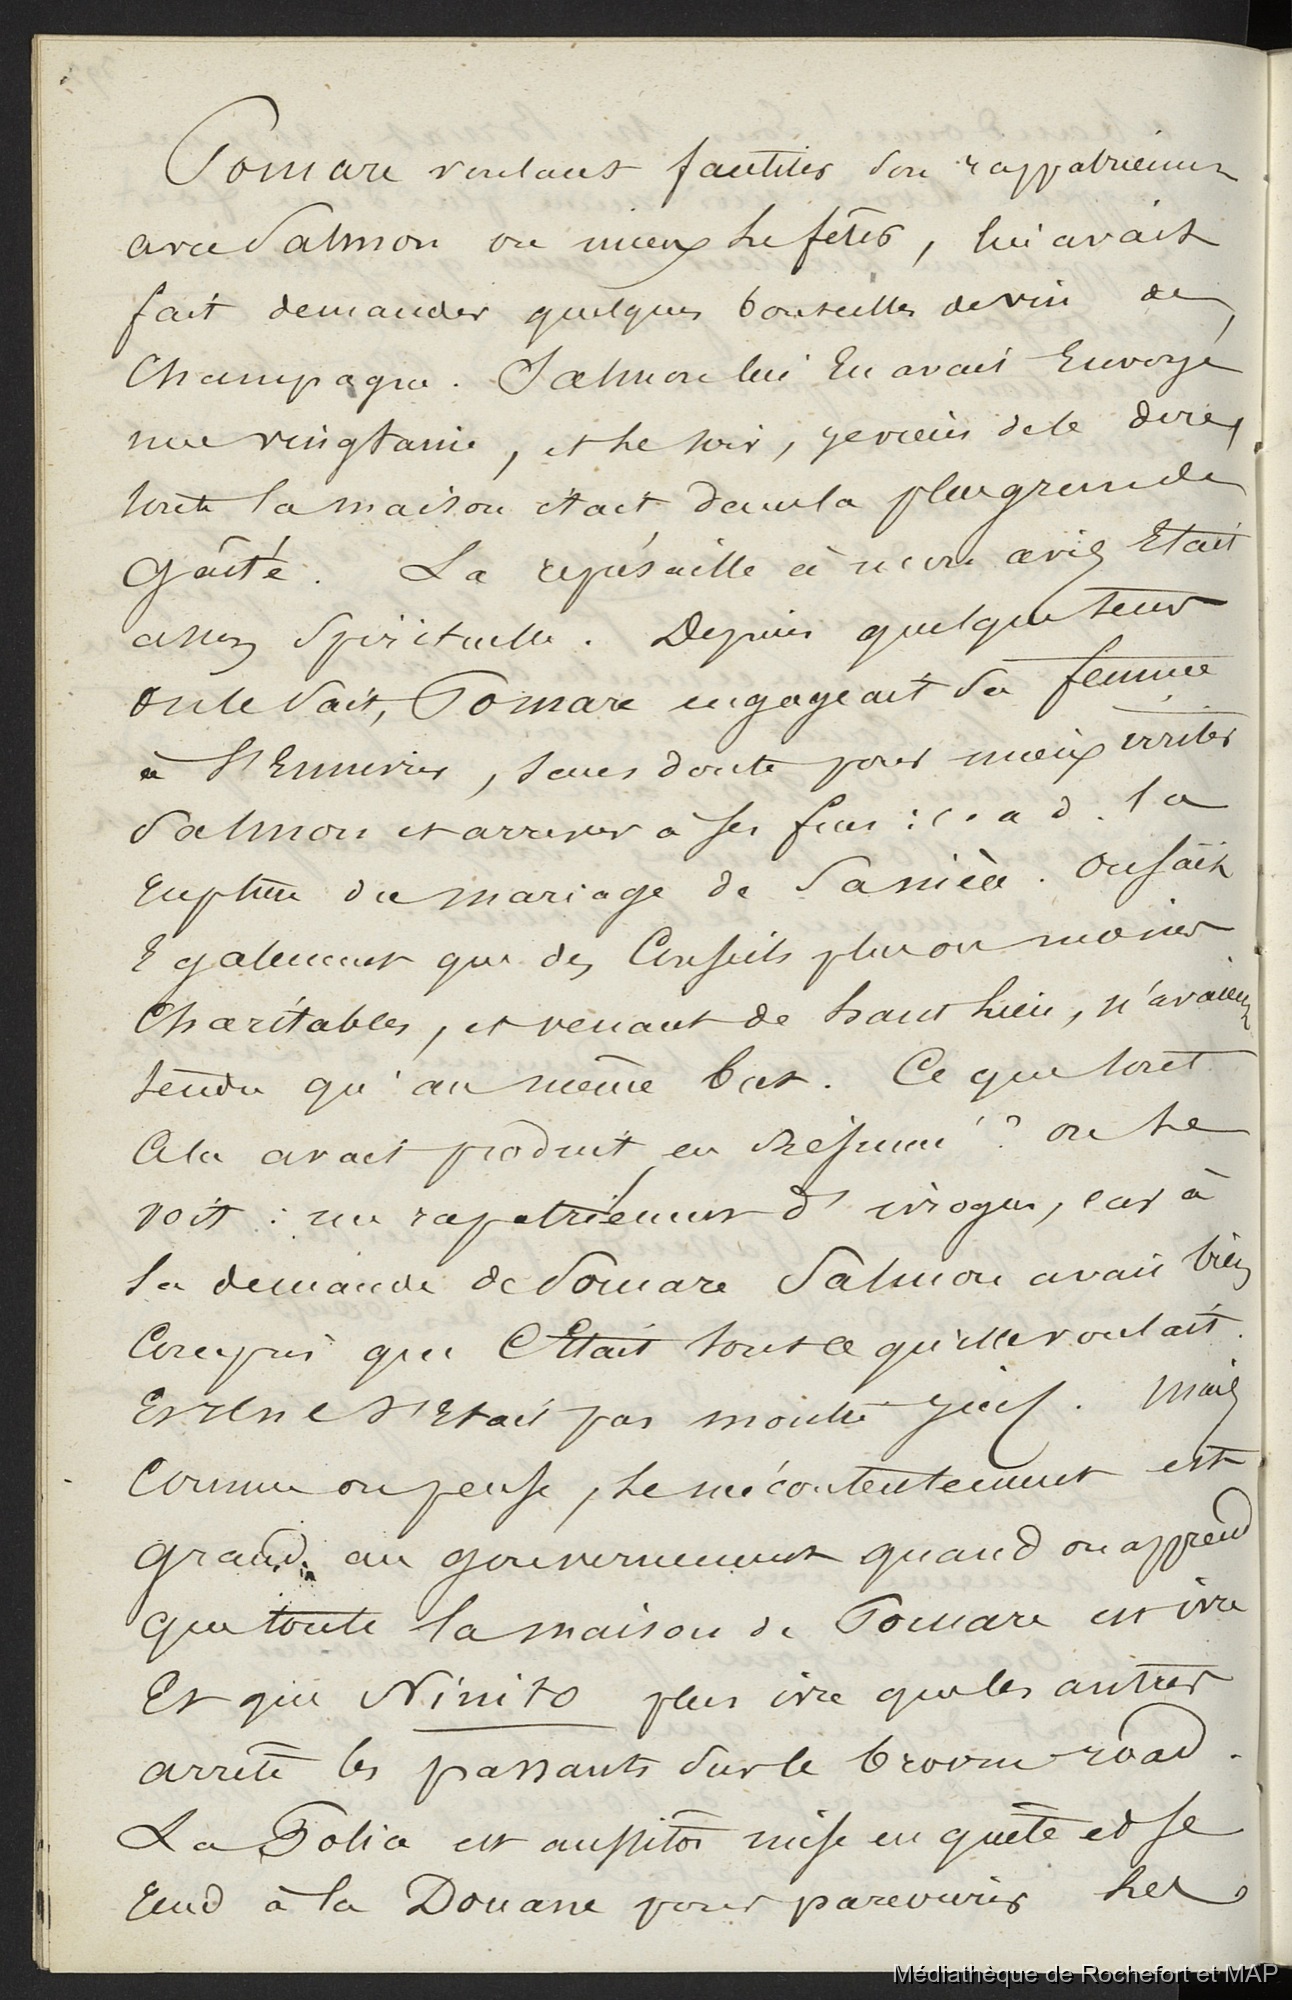 Pomare voulant fautiter son rappatriement
avec Salmon ou mieux le fêter, lui avait
fait demander quelques bouteilles de vin de
Champagne. Salmon lui En avait Envoyé
une vingtaine, et le soir, je viens de le dire,
toute la maison était dans la plus grande
gaîté. La représaille à mon avis Etait
assez Spirituelle. Depuis quelque tems
on le sait, Pomare engageait sa femme
à S'Ennivrer, sans doute pour mieux irriter
Salmon et arriver à ses fins : c. a d. la
rupture du mariage de . On sait
Egalement que des Conseils plus ou moins
Charitables, et venant de haut lieu, n'avaient
tendu qu'au même but. Ce que tout
Cela avait produit en Résumé ? on le
voit : un rapatriement d'ivrognes, car à
la demande de Pomare Salmon avait bien
Compris que C'Etait tout ce qu'elle voulait.
Et Elle ne S'Etait pas . Mais
Comme on pense, le mécontentement est
grand au gouvernement quand on apprend
que toute la maison de Pomare est ivre
Et que Ninito plus ivre que les autres
arrête les passants sur le broom road.
La Police est aussitôt mise en quête et se
rend à la Douane pour parcourir les
Médiathèque de Rochefort et MAP